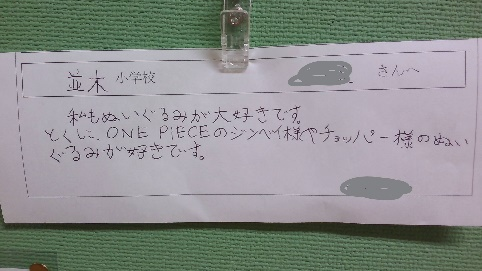 並木 小学校 さんへ
私もぬいぐるみが大好きです。
とくに、ONE PIECEのジンベイ様やチョッパー様のぬい
ぐるみが好きです。